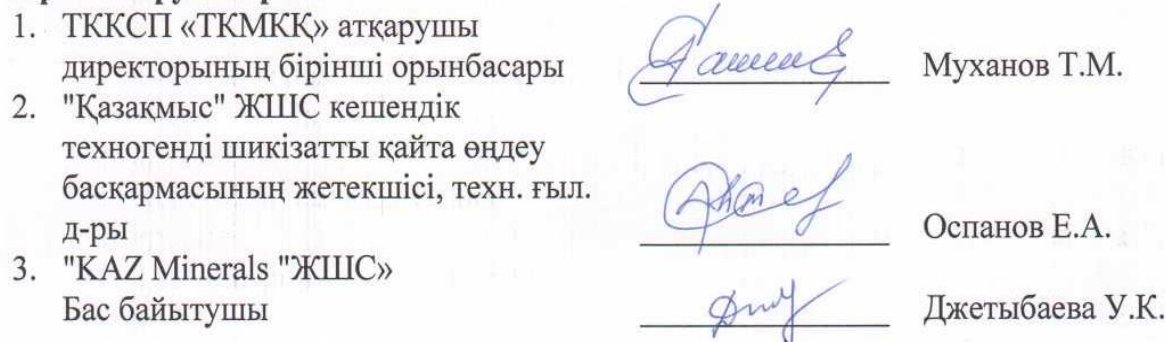 1. ТККСП «ТКМКҚ» атқарушы
директорының бірінші орынбасары Муханов Т.М.
2. "Қазақмыс" ЖШС кешендік
техногенді шикізатты қайта өңдеу
басқармасының жетекшісі, техн. ғыл.
д-ры Оспанов Е.А.
3. "KAZ Minerals "ЖШС»
Бас байытушы Джетыбаева У.К.